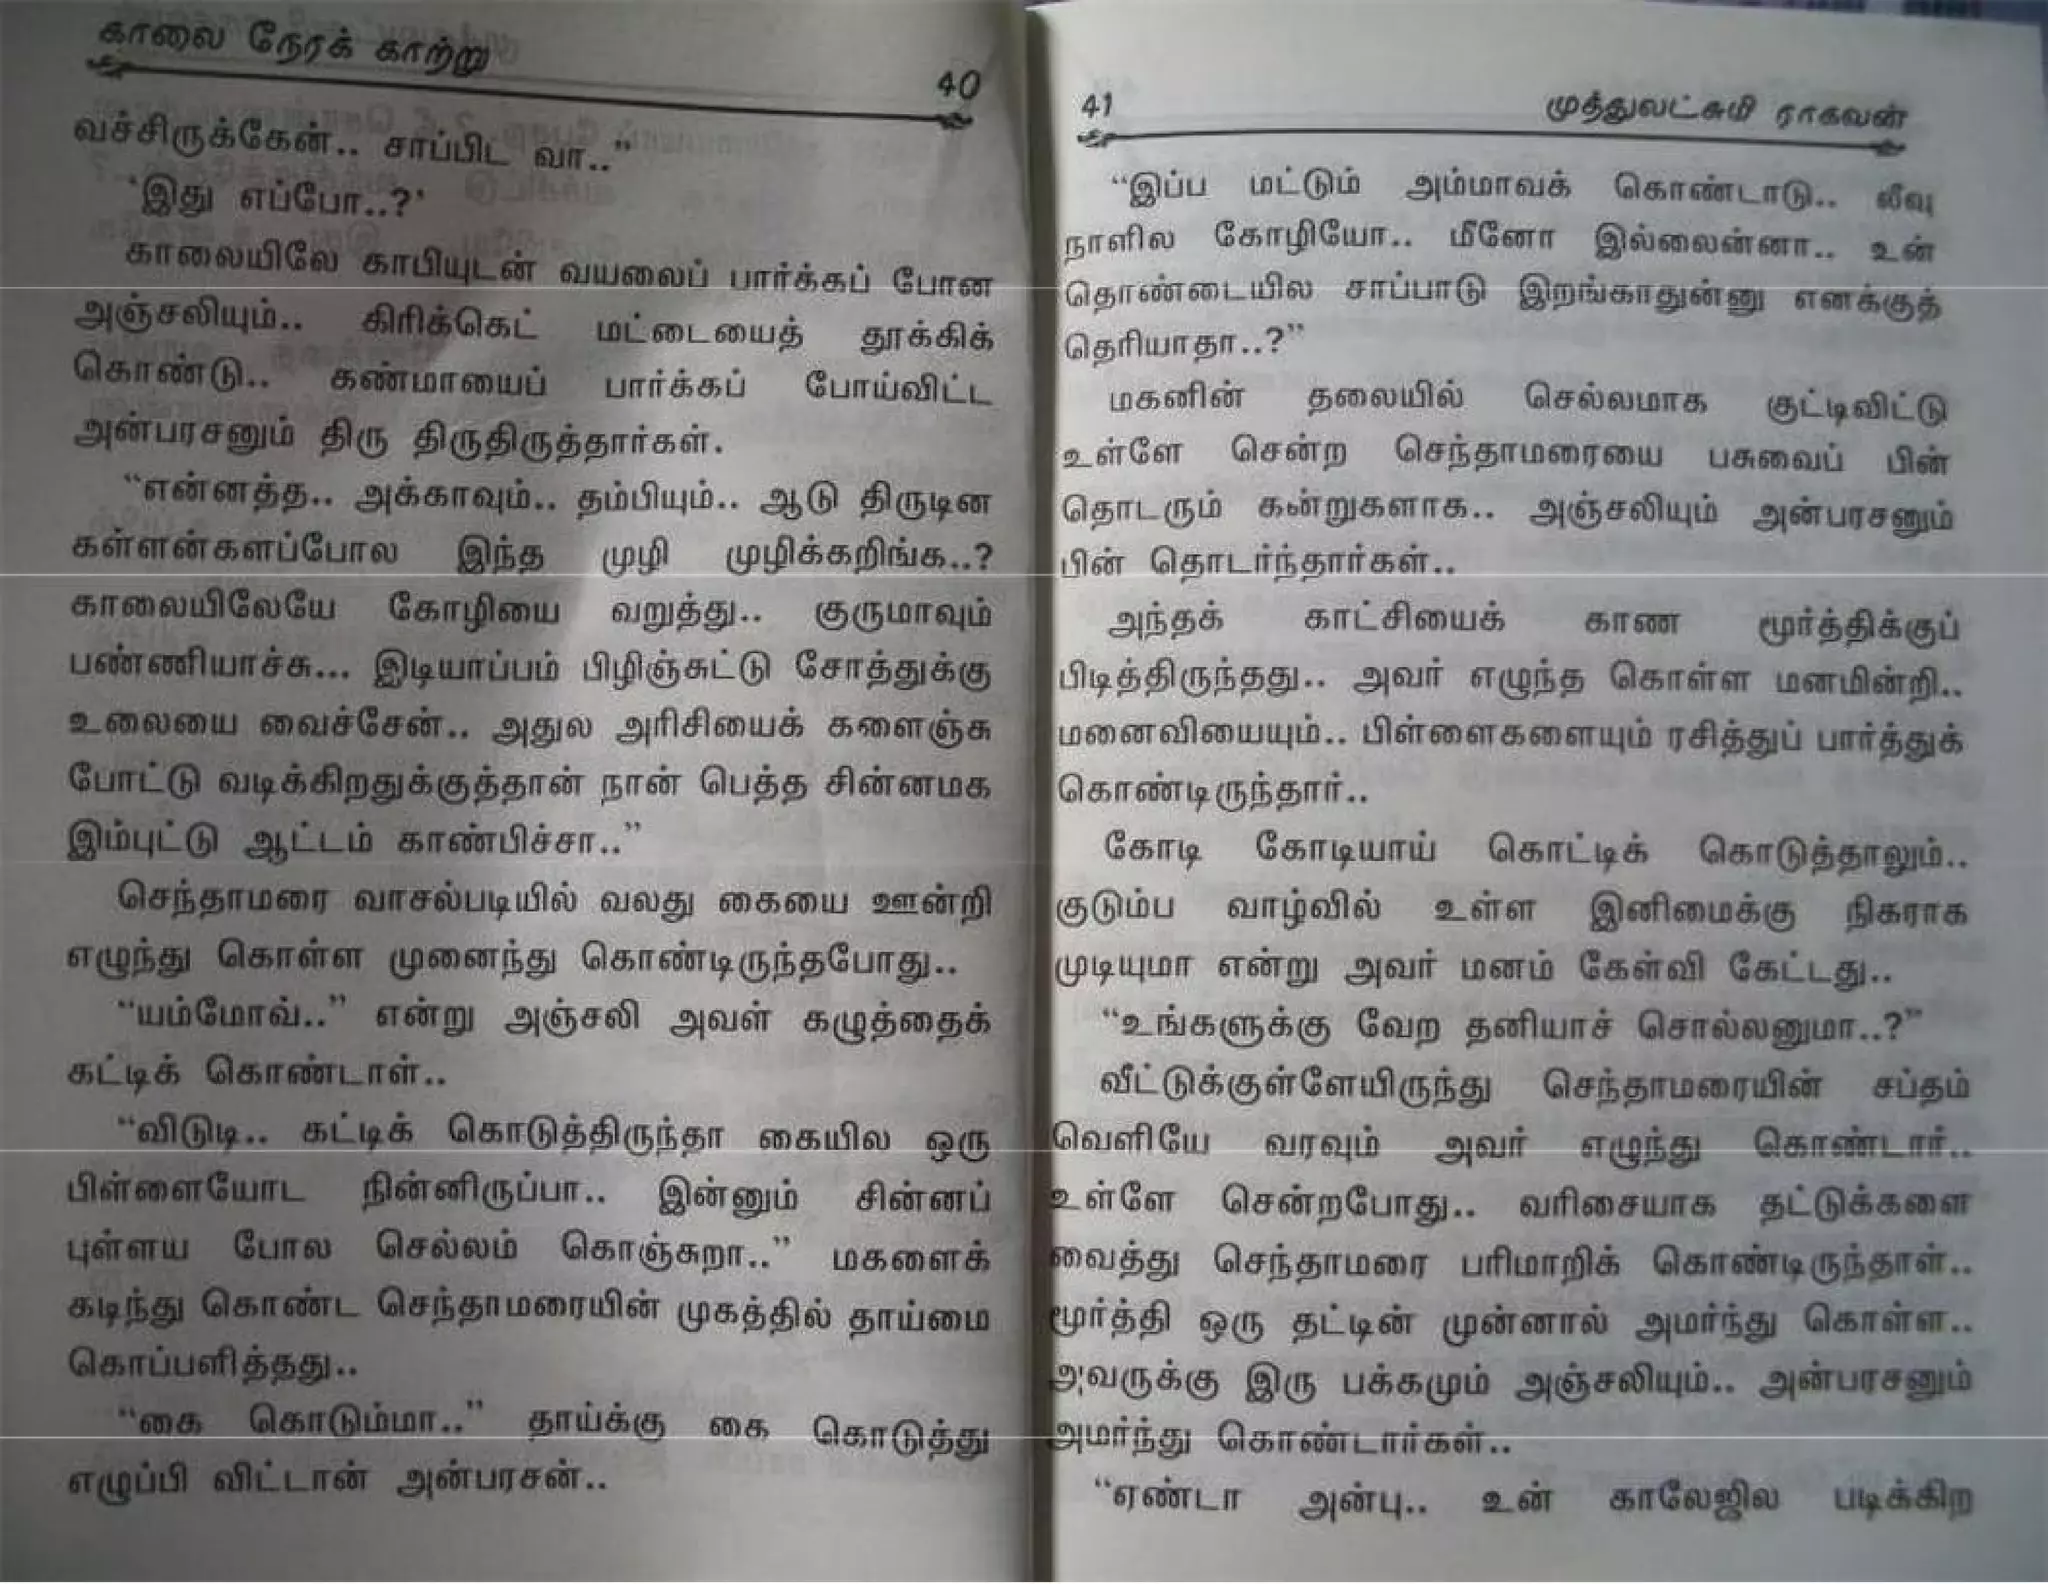 காலை நேரக் காற்று
40
வச்சிருக்கேன்.. சாப்பிட வா..”
‘இது எப்போ..?‘
காலையிலே காபியுடன் வயலைப் பார்க்கப் போன
அஞ்சலியும்.. கிரிக்கெட் மட்டையைத் தூக்கிக்
கொண்டு.. கண்மாயைப் பார்க்கப் போய்விட்ட
அன்பரசனும் திரு திருதிருத்தார்கள்.
“என்னத்த.. அக்காவும்.. தம்பியும்.. ஆடு திருடின
கள்ளன்களப்போல இந்த முழி முழிக்கறிங்க..?
காலையிலேயே கோழியை வறுத்து.. குருமாவும்
பண்ணியாச்சு... இடியாப்பம் பிழிஞ்சுட்டு சோத்துக்கு
உலையை வைச்சேன்.. அதுல அரிசியைக் களைஞ்சு
போட்டு வடிக்கிறதுக்குத்தான் நான் பெத்த சின்னமக
இம்புட்டு ஆட்டம் காண்பிச்சா..”
செந்தாமரை வாசல்படியில் வலது கையை ஊன்றி
எழுந்து கொள்ள முனைந்து கொண்டிருந்தபோது..
“யம்மோவ்..” என்று அஞ்சலி அவள் கழுத்தைக்
கட்டிக் கொண்டாள்..
“விடுடி.. கட்டிக் கொடுத்திருந்தா கையில ஒரு
பிள்ளையோட நின்னிருப்பா.. இன்னும் சின்னப்
புள்ளய போல செல்லம் கொஞ்சுறா..” மகளைக்
கடிந்து கொண்ட செந்தாமரையின் முகத்தில் தாய்மை
கொப்பளித்தது..
“கை கொடும்மா..” தாய்க்கு கை கொடுத்து
எழுப்பி விட்டான் அன்பரசன்..
41
முத்துலட்சுமி ராகவன்
“இப்ப மட்டும் அம்மாவக் கொண்டாடு.. லீவு
நாளில கோழியோ.. மீனோ இல்லைன்னா.. உன்
தொண்டையில சாப்பாடு இறங்காதுன்னு எனக்குத்
தெரியாதா..?”
மகனின் தலையில் செல்லமாக குட்டிவிட்டு
உள்ளே சென்ற செந்தாமரையை பசுவைப் பின்
தொடரும் கன்றுகளாக.. அஞ்சலியும் அன்பரசனும்
பின் தொடர்ந்தார்கள்..
அந்தக் காட்சியைக் காண மூர்த்திக்குப்
பிடித்திருந்தது.. அவர் எழுந்த கொள்ள மனமின்றி..
மனைவியையும்.. பிள்ளைகளையும் ரசித்துப் பார்த்துக்
கொண்டிருந்தார்..
கோடி கோடியாய் கொட்டிக் கொடுத்தாலும்..
குடும்ப வாழ்வில் உள்ள இனிமைக்கு நிகராக
முடியுமா என்று அவர் மனம் கேள்வி கேட்டது..
“உங்களுக்கு வேற தனியாச் சொல்லனுமா..?”
வீட்டுக்குள்ளேயிருந்து செந்தாமரையின் சப்தம்
வெளியே வரவும் அவர் எழுந்து கொண்டார்..
உள்ளே சென்றபோது.. வரிசையாக தட்டுக்களை
வைத்து செந்தாமரை பரிமாறிக் கொண்டிருந்தாள்..
மூர்த்தி ஒரு தட்டின் முன்னால் அமர்ந்து கொள்ள..
அவருக்கு இரு பக்கமும் அஞ்சலியும்.. அன்பரசனும்
அமர்ந்து கொண்டார்கள்..
“ஏண்டா அன்பு.. உன் காலேஜில படிக்கிற